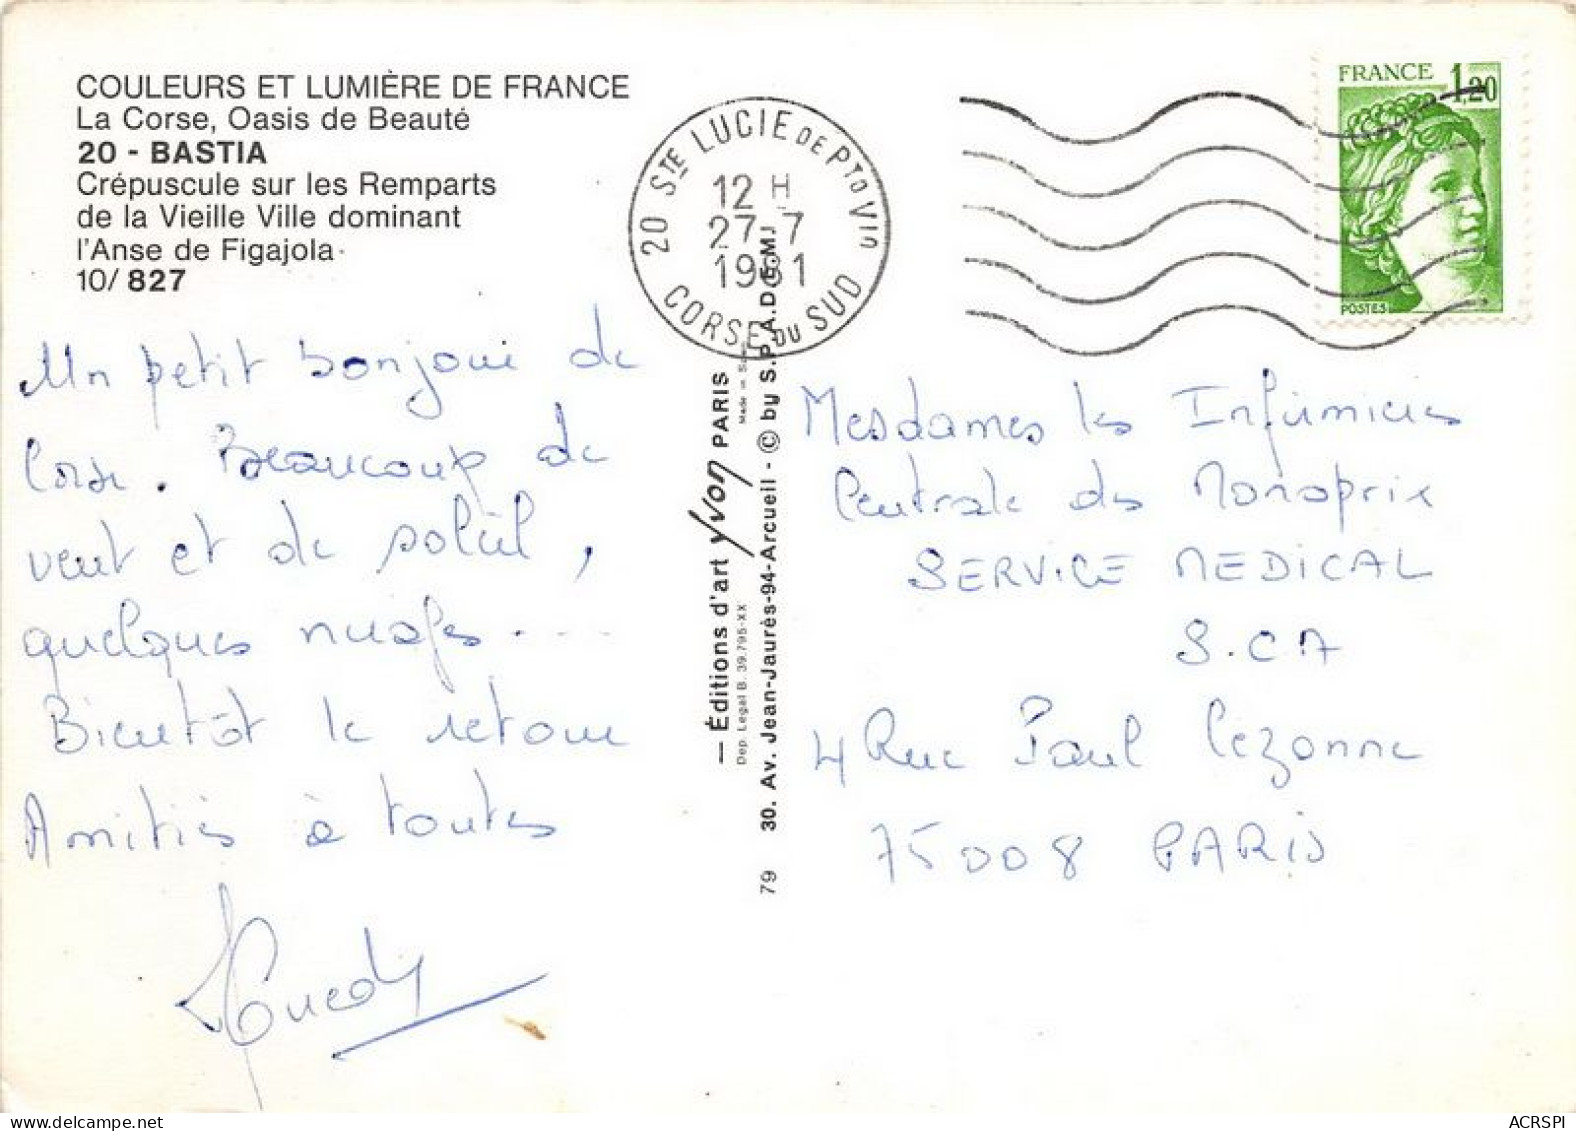 COULEURS ET LUMIÈRE DE FRANCE
La Corse, Oasis de Beauté
20 - BASTIA
Crépuscule sur les Remparts
de la Vieille Ville dominant
l'Anse de Figajola
10/ 827
20 STE LUCIE DE PTO VIO
12 H
27-7
1981
CORSE DU SUD
FRANCE 1,20
POSTES
Un petit bonjour de
Corse. Beaucoup de
vent et de soleil,
quelques nuages....
Bientôt le retour
Amitiés à toutes
— Éditions d'art Yvon PARIS
Dep. Legal B. 39.795-XX
79 30. Av. Jean-Jaurès-94-Arcueil - © by S.P.A.D.E.M.
Mesdames les Infirmières
Centrale des Monoprix
SERVICE MEDICAL
S.CA
4 Rue Paul Cézanne
75008 PARIS
ACRSPI